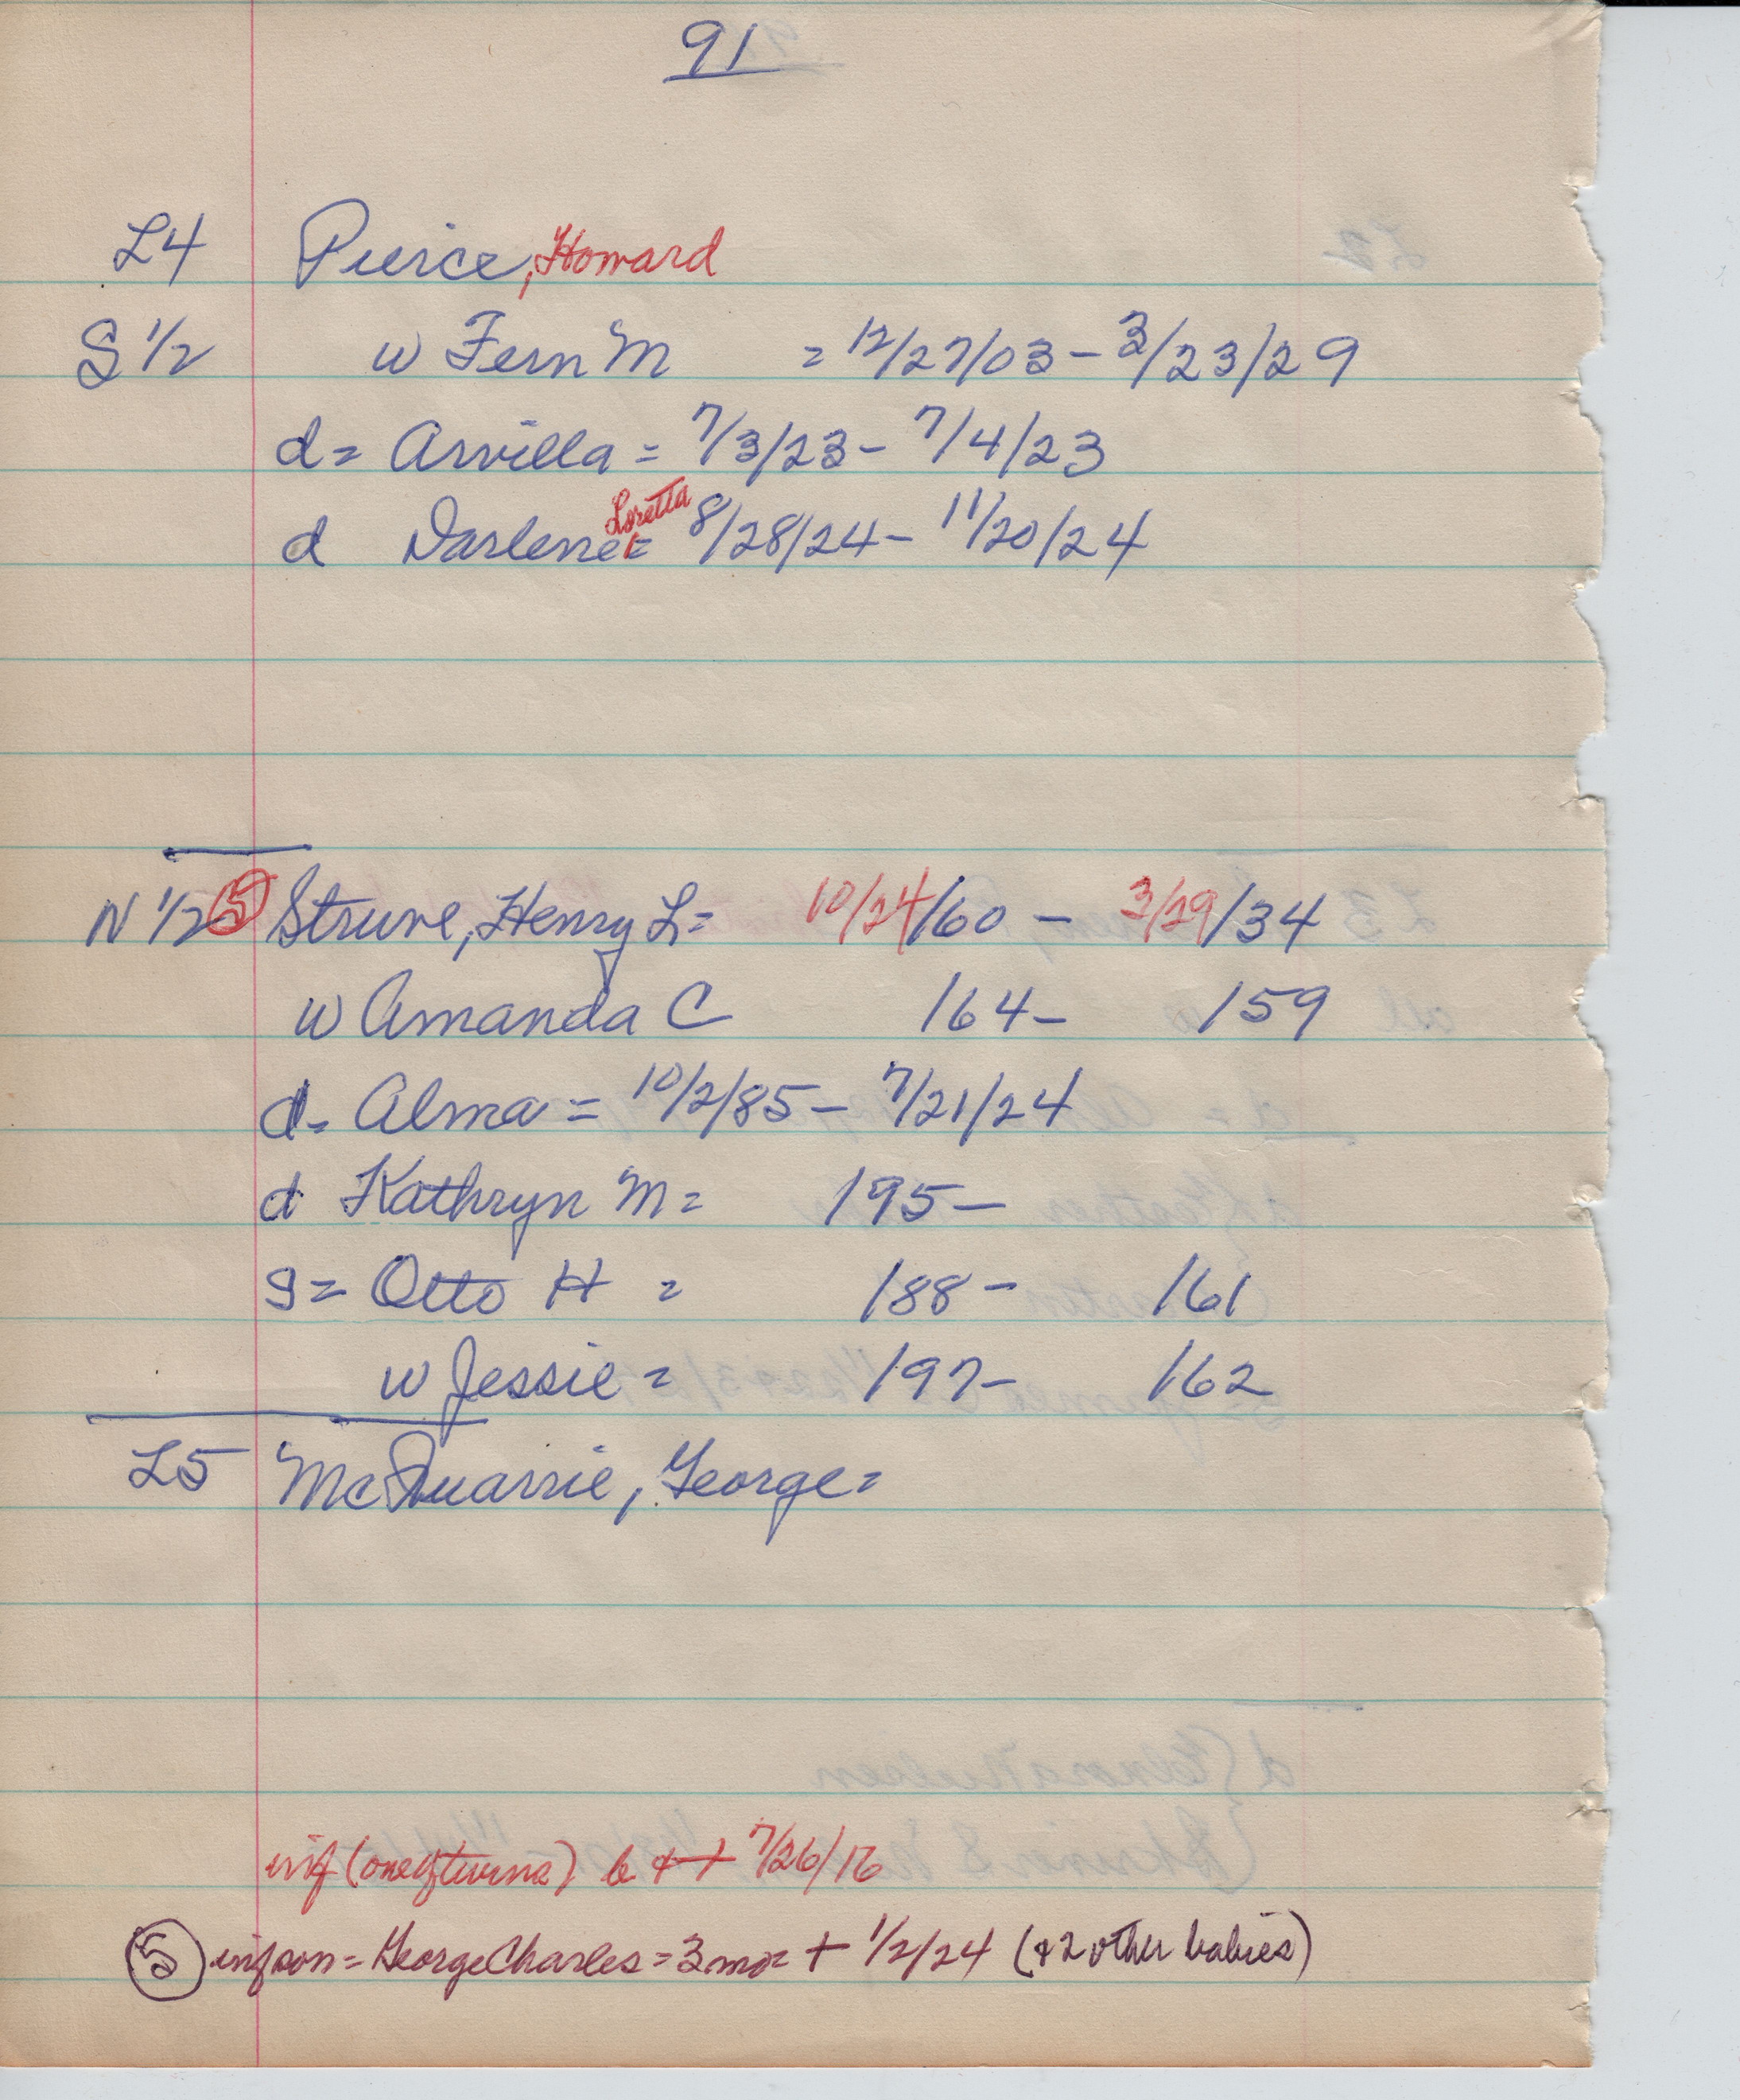 91
L4 Pierce, Howard
S 1/2 w Fern M = 12/27/03 - 3/23/29
d = Arvilla = 7/3/23 - 7/4/23
d Darlene Loretta = 8/28/24 - 11/20/24
N 1/2 (5) Struve, Henry L = 10/24/60 - 3/29/34
w Amanda C 164 - 159
d = Alma = 10/2/85 - 7/21/24
d Kathryn M = 195 -
s = Otto H = 188 - 161
w Jessie = 197 - 162
L5 McQuarrie, George =
inf (one of twins) b & + 7/26/16
(5) inf son = George Charles = 3 mo = + 1/2/24 (& 2 other babies)